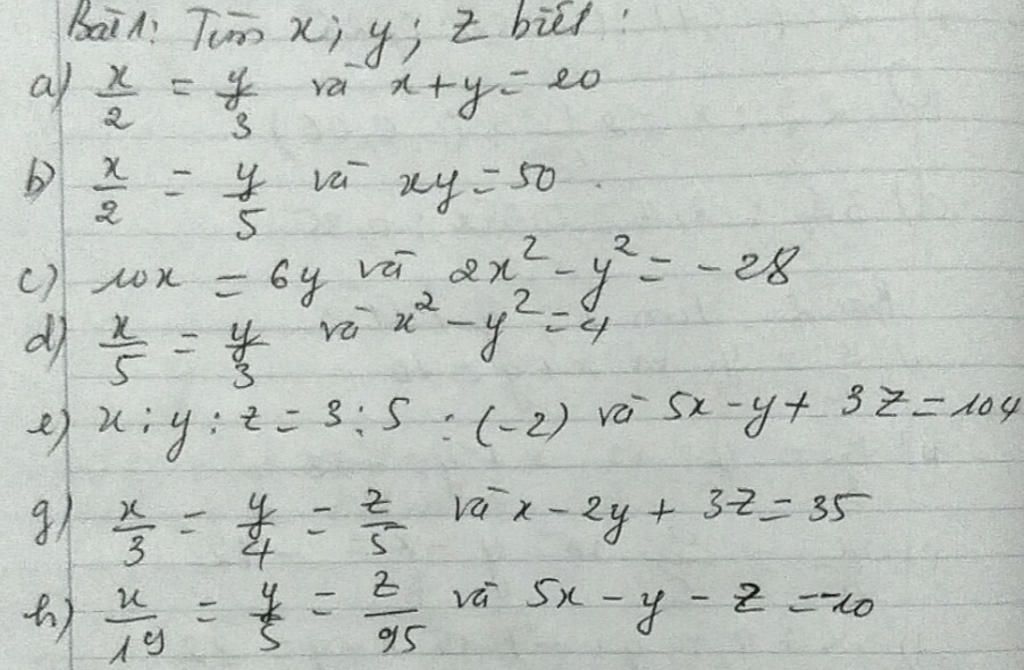 Bài 1: Tìm x; y; z biết:
a) x/2 = y/3 và x+y = 20
b) x/2 = y/5 và xy = 50.
c) 10x = 6y và 2x² - y² = -28
d) x/5 = y/3 và x² - y² = 4
e) x : y : z = 3 : 5 : (-2) và 5x - y + 3z = 104
g) x/3 = y/4 = z/5 và x - 2y + 3z = 35
h) x/19 = y/5 = z/95 và 5x - y - z = -10